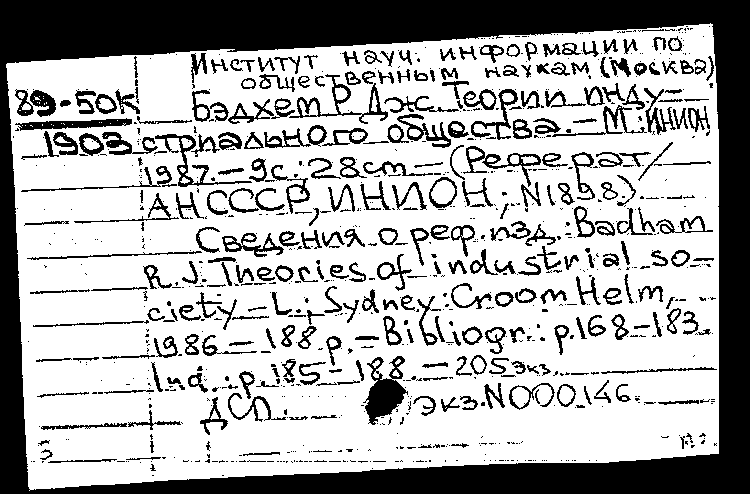 Институт науч. информации по
общественным наукам (Москва)
89-50к Бэдхем Р. Дж. Теории инду-
1903 стриального общества. - М.: ИНИОН,
1987. - 9с.; 28cm - (Реферат /
АН СССР, ИНИОН; N 1898).
Сведения о реф. изд.: Badham
R.J. Theories of industrial so-
ciety - L.; Sydney: Croom Helm,
1986. - 188 p. - Bibliogr.: p.168-183.
Ind.: p.185-188. - 205 экз.
ДСП. экз. N000146.
5